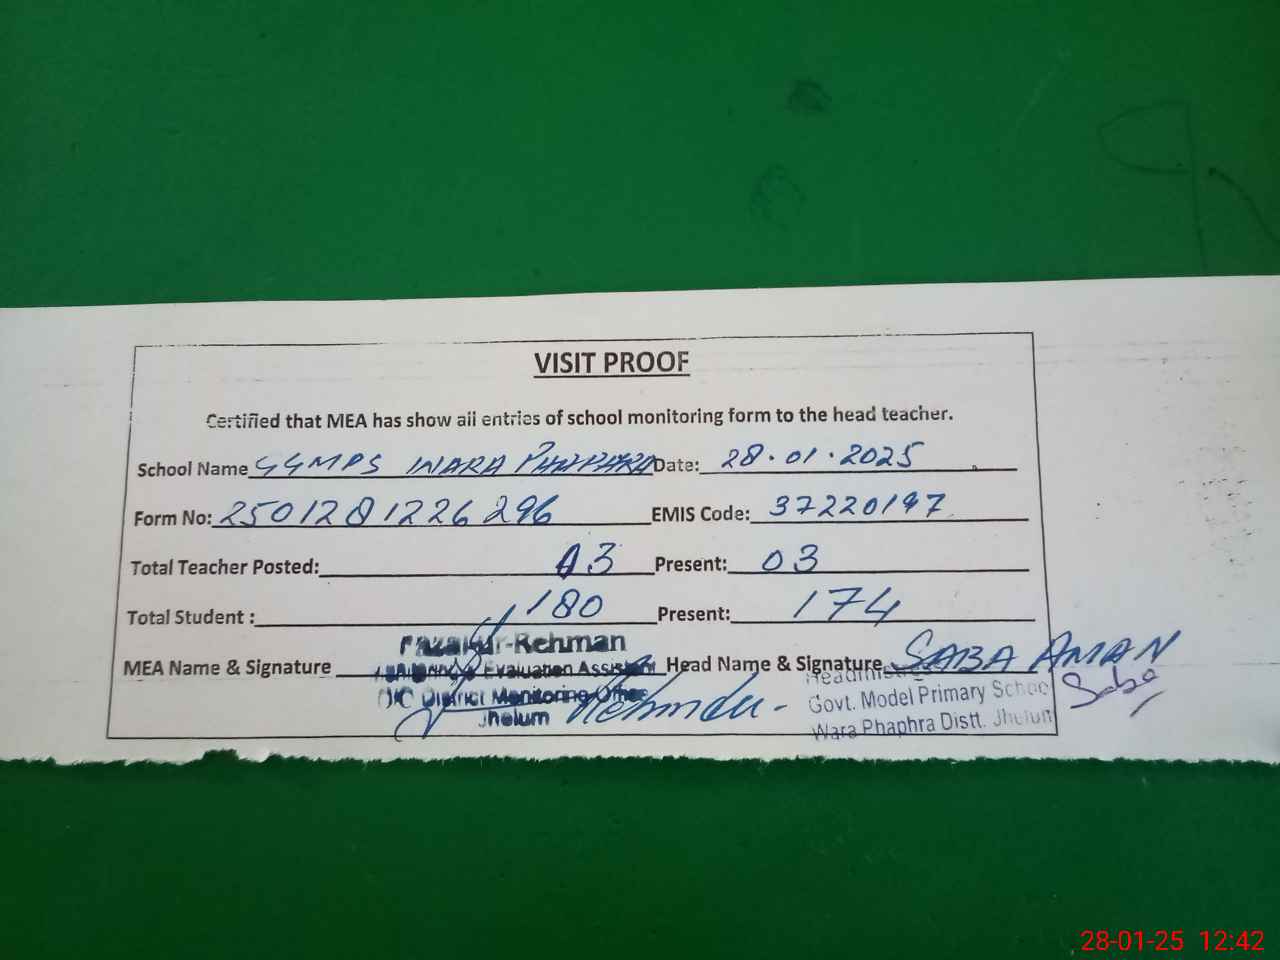 VISIT PROOF
Certified that MEA has show all entries of school monitoring form to the head teacher.
School Name GGMPS WARA PHAPHARA Date: 28.01.2025
Form No: 2501281226296 EMIS Code: 37220197
Total Teacher Posted: 03 Present: 03
Total Student : 180 Present: 174
MEA Name & Signature Head Name & Signature SABA AMAN
-Rehman
Evaluation Assistant
O/C District Monitoring Office
Jhelum
Headmistress
Govt. Model Primary School
Wara Phaphra Distt. Jhelum
Saba
28-01-25 12:42